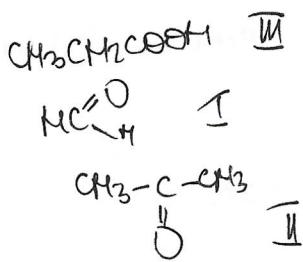 CH3CH2COOH III
HC=O I
H
CH3-C-CH3
O II